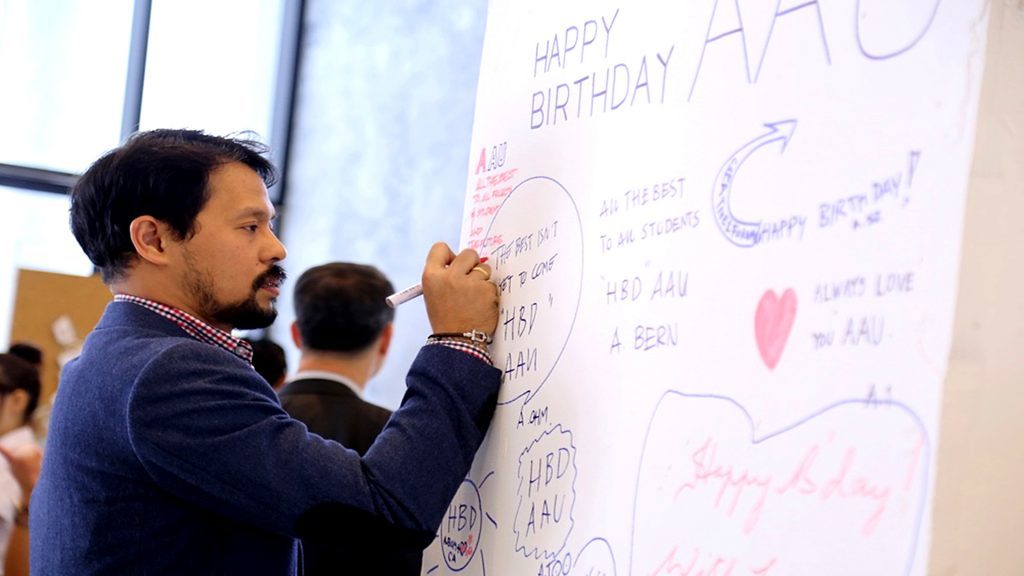 HAPPY
BIRTHDAY AAU
AAU
ALL THE BEST
THE BEST ISN'T
YET TO COME
"HBD"
AAU
A. OHM.
ALL THE BEST
TO ALL STUDENTS
"HBD" AAU
A. BERN
HAPPY BIRTHDAY!
ALWAYS LOVE
YOU AAU
HBD
AAU
HBD
CA
ATOO
Happy B'day!
With